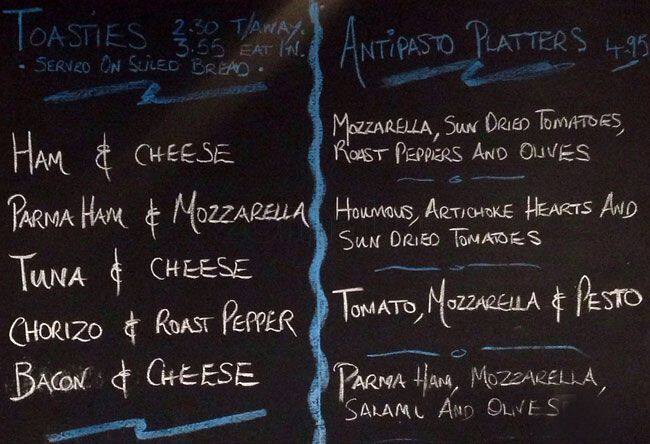 TOASTIES 2.30 T/AWAY.
3.55 EAT IN.
• SERVED ON SLICED BREAD •
HAM & CHEESE
PARMA HAM & MOZZARELLA
TUNA & CHEESE
CHORIZO & ROAST PEPPER
BACON & CHEESE
ANTIPASTO PLATTERS 4.95
MOZZARELLA, SUN DRIED TOMATOES,
ROAST PEPPERS AND OLIVES
HOUMOUS, ARTICHOKE HEARTS AND
SUN DRIED TOMATOES
TOMATO, MOZZARELLA & PESTO
PARMA HAM, MOZZARELLA,
SALAMI AND OLIVES